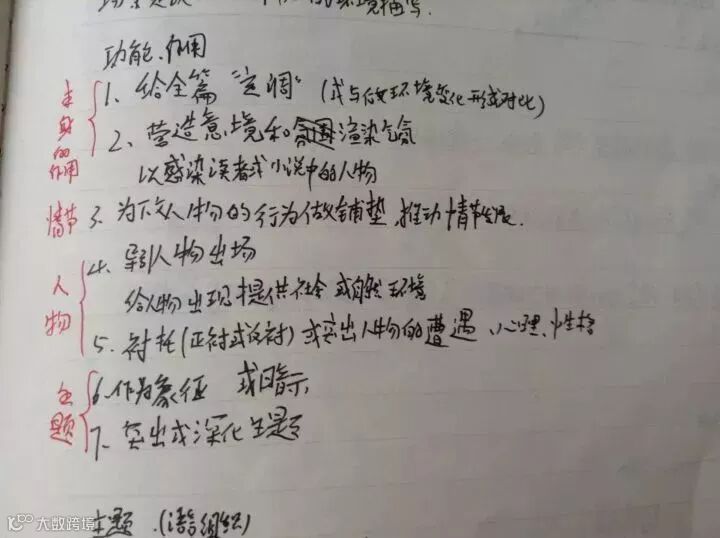 环境描写.
功能.作用
主身的作用
1、给全篇“定调”（或与后文环境变化形成对比）
2、营造意境和渲染气氛
以感染读者或小说中的人物
情节
3、为下文人物的行为做铺垫,推动情节发展.
人物
4、引人物出场
给人物出现提供社会或自然环境
5、衬托(正衬或反衬)或突出人物的遭遇、心理、性格
主题
6.作为象征 或暗示
7、突出或深化主题
主题.(语言组织)
大数跨境